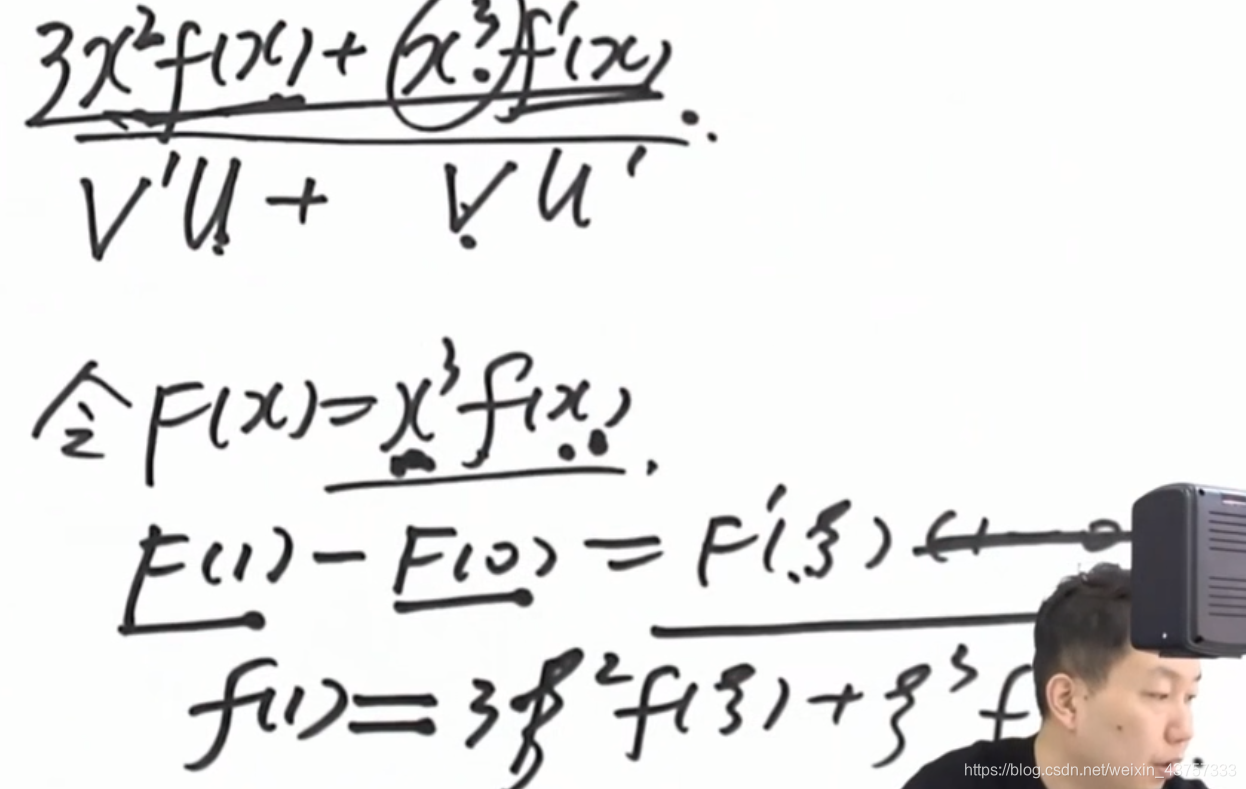 3x²f(x)+x³f'(x)
V'U+ VU'
令F(x)=x³f(x).
F(1)-F(0)=F'(ξ)(1-0
f(1)=3ξ²f(ξ)+ξ³f
https://blog.csdn.net/weixin_43757333